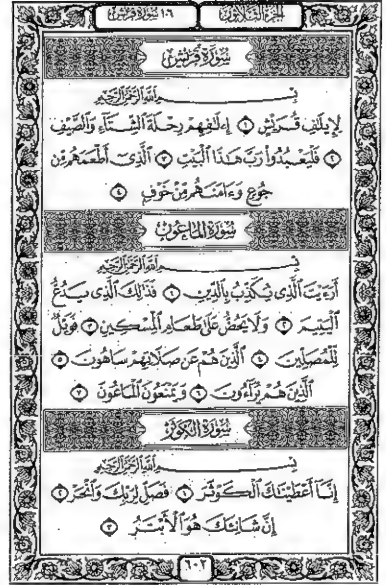 الجزء الثلاثون
١٠٦ سورة قريش
سُورَةُ قُرَيْشٍ
بِسْمِ اللَّهِ الرَّحْمَٰنِ الرَّحِيمِ
لِإِيلَٰفِ قُرَيْشٍ ١ إِۦلَٰفِهِمْ رِحْلَةَ ٱلشِّتَآءِ وَٱلصَّيْفِ
٢ فَلْيَعْبُدُوا۟ رَبَّ هَٰذَا ٱلْبَيْتِ ٣ ٱلَّذِىٓ أَطْعَمَهُم مِّن
جُوعٍ وَءَامَنَهُم مِّنْ خَوْفٍۭ ٤
سُورَةُ الْمَاعُونِ
بِسْمِ اللَّهِ الرَّحْمَٰنِ الرَّحِيمِ
أَرَءَيْتَ ٱلَّذِى يُكَذِّبُ بِٱلدِّينِ ١ فَذَٰلِكَ ٱلَّذِى يَدُعُّ
ٱلْيَتِيمَ ٢ وَلَا يَحُضُّ عَلَىٰ طَعَامِ ٱلْمِسْكِينِ ٣ فَوَيْلٌ
لِّلْمُصَلِّينَ ٤ ٱلَّذِينَ هُمْ عَن صَلَاتِهِمْ سَاهُونَ ٥
ٱلَّذِينَ هُمْ يُرَآءُونَ ٦ وَيَمْنَعُونَ ٱلْمَاعُونَ ٧
سُورَةُ الْكَوْثَرِ
بِسْمِ اللَّهِ الرَّحْمَٰنِ الرَّحِيمِ
إِنَّآ أَعْطَيْنَٰكَ ٱلْكَوْثَرَ ١ فَصَلِّ لِرَبِّكَ وَٱنْحَرْ ٢
إِنَّ شَانِئَكَ هُوَ ٱلْأَبْتَرُ ٣
٦٠٢